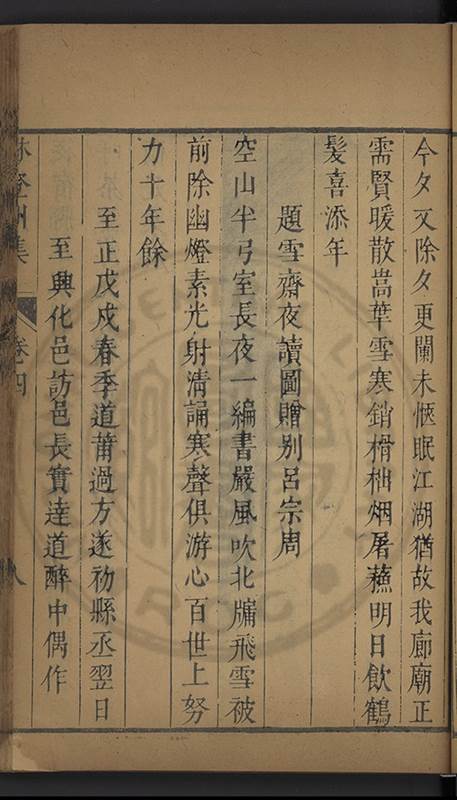 今夕又除夕更闌未愜眠江湖猶故我廊廟正
需賢暖散蒿葉雪寒銷榾柮烟屠蘓明日飲鶴
髪喜添年
題雪齋夜讀圖贈别呂宗周
空山半弓室長夜一編書嚴風吹北牗飛雪被
前除幽燈素光射清誦寒聲俱游心百世上努
力十年餘
至正戊戌春季道莆過方遂初縣丞翌日
至興化邑訪邑長寳達道醉中偶作
林登州集 卷四 八